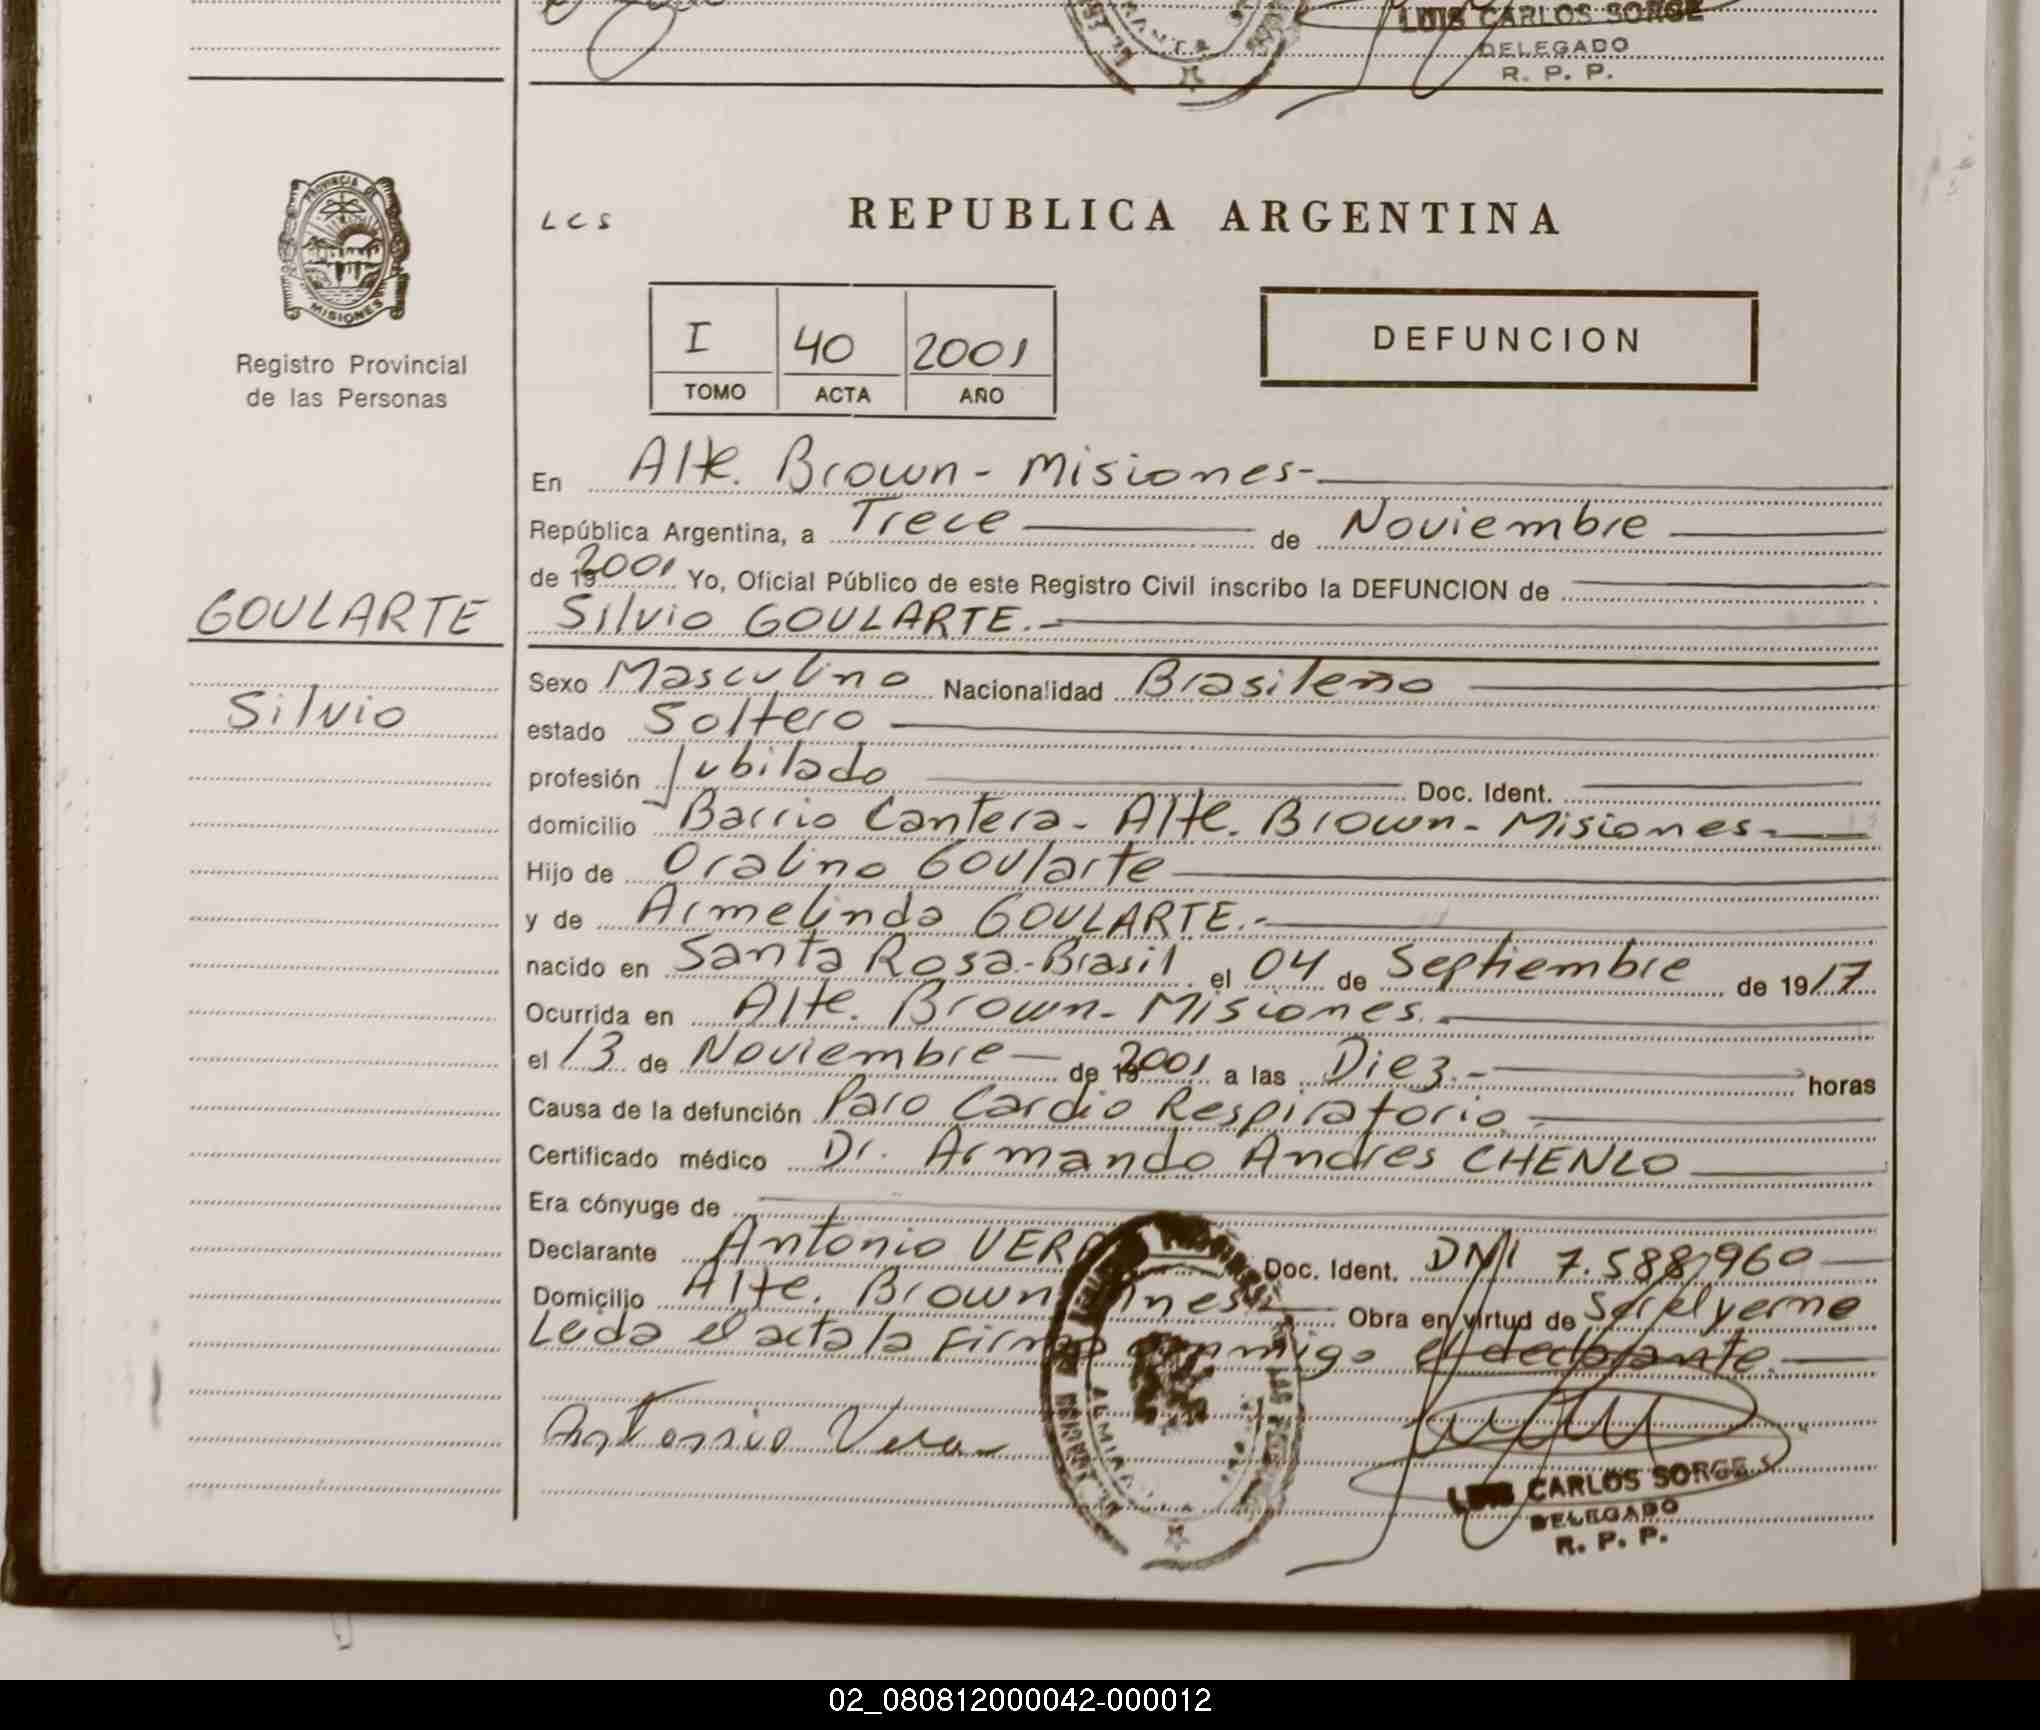 LUIS CARLOS SORGE
DELEGADO
R. P. P.
PROVINCIA DE
MISIONES
Registro Provincial
de las Personas
LCS
REPUBLICA ARGENTINA
I 40 2001
TOMO ACTA AÑO
DEFUNCION
En Alte. Brown - Misiones-
República Argentina, a Trece de Noviembre
de 19 2001 Yo, Oficial Público de este Registro Civil inscribo la DEFUNCION de
GOULARTE
Silvio GOULARTE.-
Sexo Masculino Nacionalidad Brasileño
Silvio
estado Soltero
profesión Jubilado Doc. Ident.
domicilio Barrio Cantera - Alte. Brown - Misiones-
Hijo de Oralino Goularte
y de Armelinda GOULARTE.-
nacido en Santa Rosa-Brasil el 04 de Septiembre de 1917
Ocurrida en Alte. Brown - Misiones.
el 13 de Noviembre de 19 2001 a las Diez.- horas
Causa de la defunción Paro Cardio Respiratorio.-
Certificado médico Dr. Armando Andres CHENLO
Era cónyuge de
Declarante Antonio VERA Doc. Ident. DNI 7.588.960
Domicilio Alte. Brown Obra en virtud de Ser el yerno
Leida el acta la firma conmigo el declarante.
Antonio Vera
LUIS CARLOS SORGE
DELEGADO
R. P. P.
02_080812000042-000012